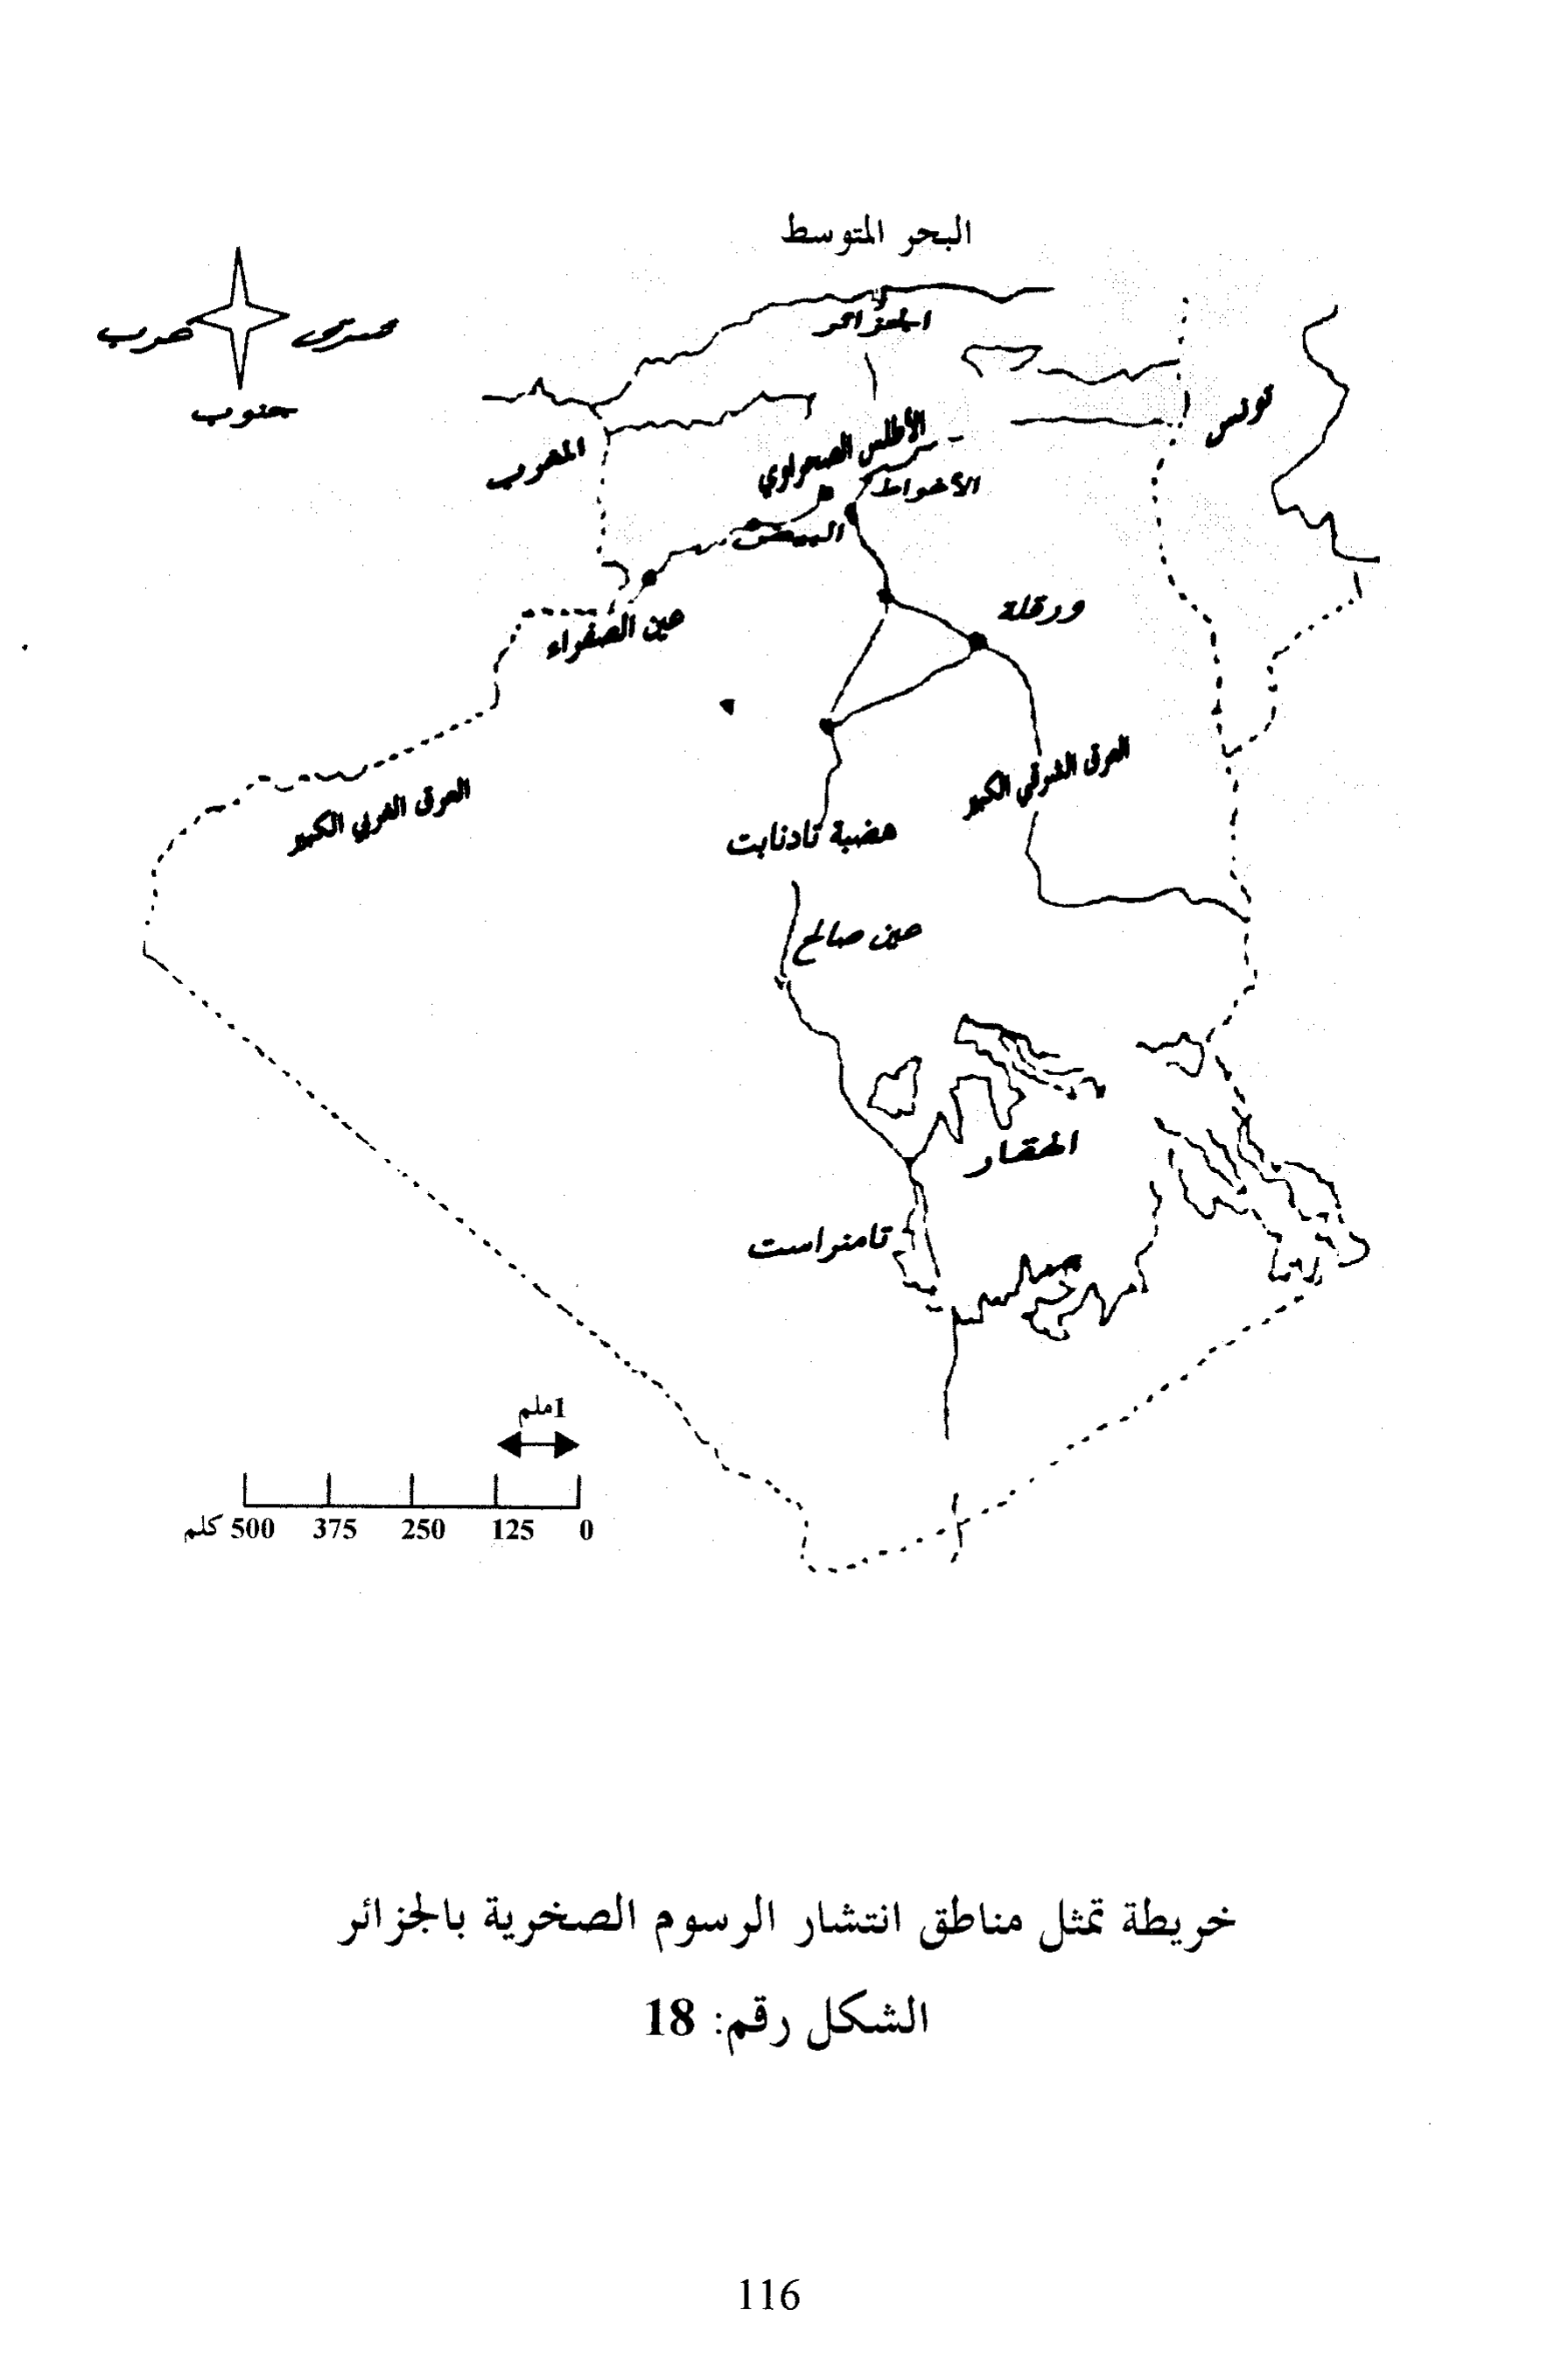 البحر المتوسط
الجزائر
شرق
غرب
جنوب
تونس
المغرب
الأطلس الصحراوي
الأغواط
البيض
عين الصفراء
ورقلة
العرق الشرقي الكبير
العرق الغربي الكبير
هضبة تادنايت
عين صالح
الهقار
تامنراست
1ملم
0 125 250 375 500 كلم
خريطة تمثل مناطق انتشار الرسوم الصخرية بالجزائر
الشكل رقم: 18
116